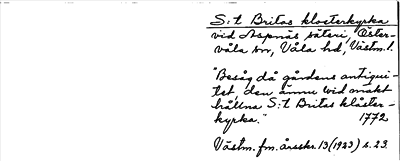 S:t Britas klosterkyrka
vid Aspnäs säteri, Öster-
våla sn, Våla hd, Västm. l.
"Besåg då gårdens antiqui-
tet, den ännu wid makt
hållna S:t Britas kläster-
kyrka." 1772
Västm. fm. årsskr. 13 (1923) s. 23.